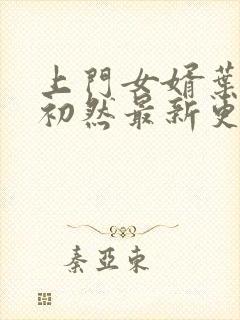 上門女婿葉
初然最新更
秦亞東